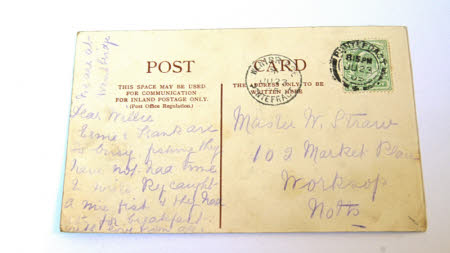 We are at
Woodbridge
POST CARD
THIS SPACE MAY BE USED
FOR COMMUNICATION
FOR INLAND POSTAGE ONLY.
(Post Office Regulation.)
THE ADDRESS ONLY TO BE
WRITTEN HERE
8.15 PM
JU 23
JU 23
Dear Willie
Ernie & Frank are
so busy fishing they
have not had time
to write. Ry caught
a nice fish & they had
it for breakfast
with love from all
Master W. Straw
102 Market Place
Worksop
Notts